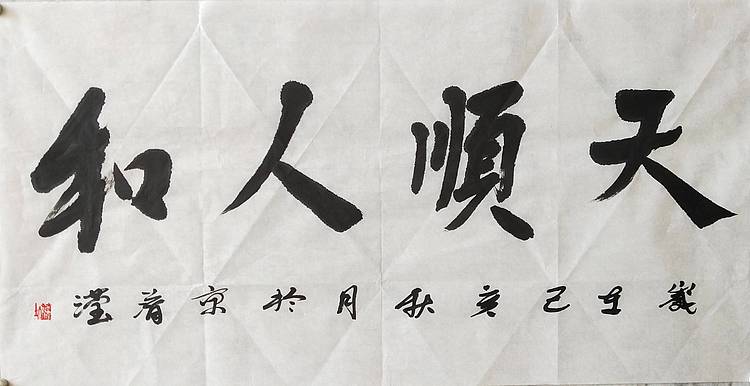 天順人和
歲在己亥秋月於京肴瀅